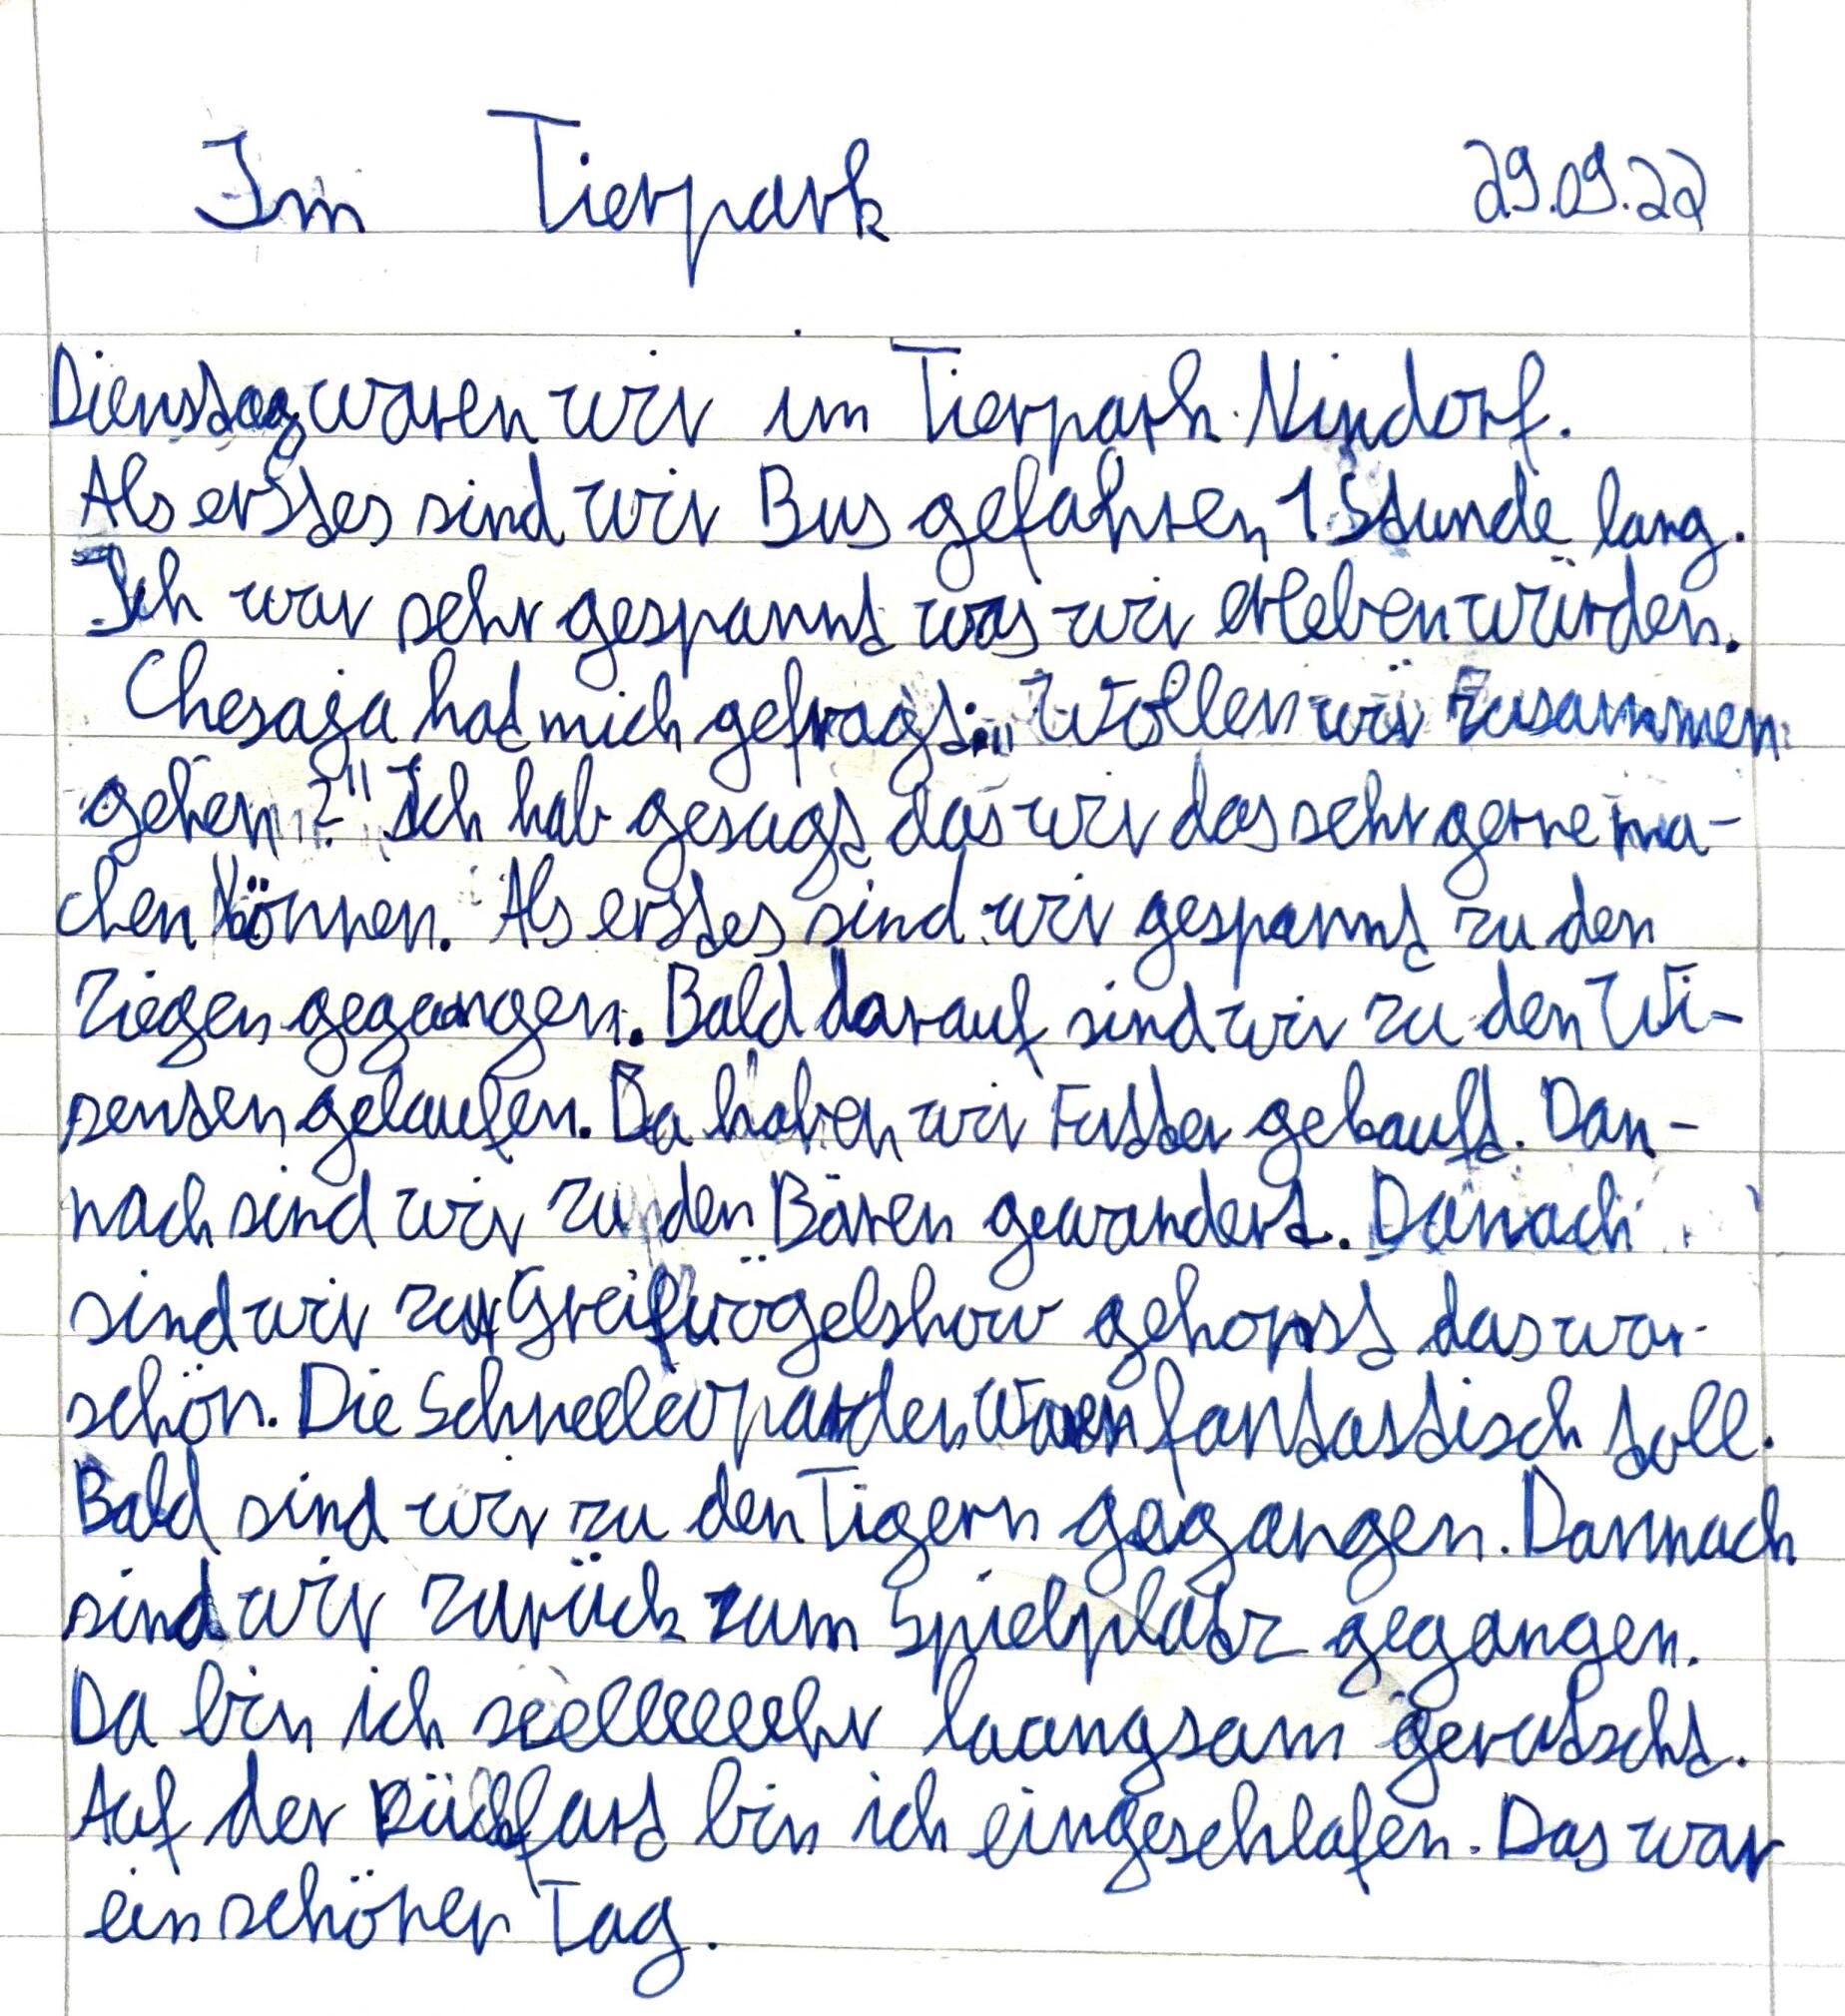 Im Tierpark 29.09.22
Dienstag waren wir im Tierpark Nindorf.
Als erstes sind wir Bus gefahren 1 Stunde lang.
Ich war sehr gespannt was wir erleben würden.
Chesaja hat mich gefragt: „Wollen wir zusammen
gehen?" Ich hab gesagt das wir das sehr gerne ma-
chen können. Als erstes sind wir gespannt zu den
Ziegen gegangen. Bald darauf sind wir zu den Wi-
senten gelaufen. Da haben wir Futter gekauft. Dan-
nach sind wir zu den Bären gewandert. Danach
sind wir zur Greifvögelshow gehopst das war
schön. Die Schneeleoparden waren fantastisch toll.
Bald sind wir zu den Tigern gegangen. Dannach
sind wir zurück zum Spielplatz gegangen.
Da bin ich seeleeeeehr laangsam gerutscht.
Auf der Rückfart bin ich eingeschlafen. Das war
ein schöner Tag.